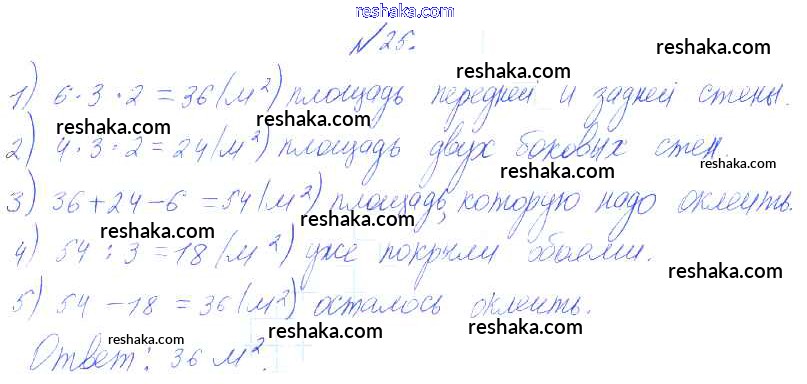 www.reshaka.com
reshaka.com
№25.
reshaka.com
1) 6·3·2=36(м²) площадь передней и задней стены.
reshaka.com reshaka.com
2) 4·3·2=24(м²) площадь двух боковых стен.
reshaka.com
3) 36+24-6=54(м²) площадь, которую надо оклеить.
reshaka.com reshaka.com
4) 54:3=18(м²) уже покрыли обоями.
reshaka.com
5) 54-18=36(м²) осталось оклеить.
reshaka.com reshaka.com reshaka.com
Ответ: 36 м².